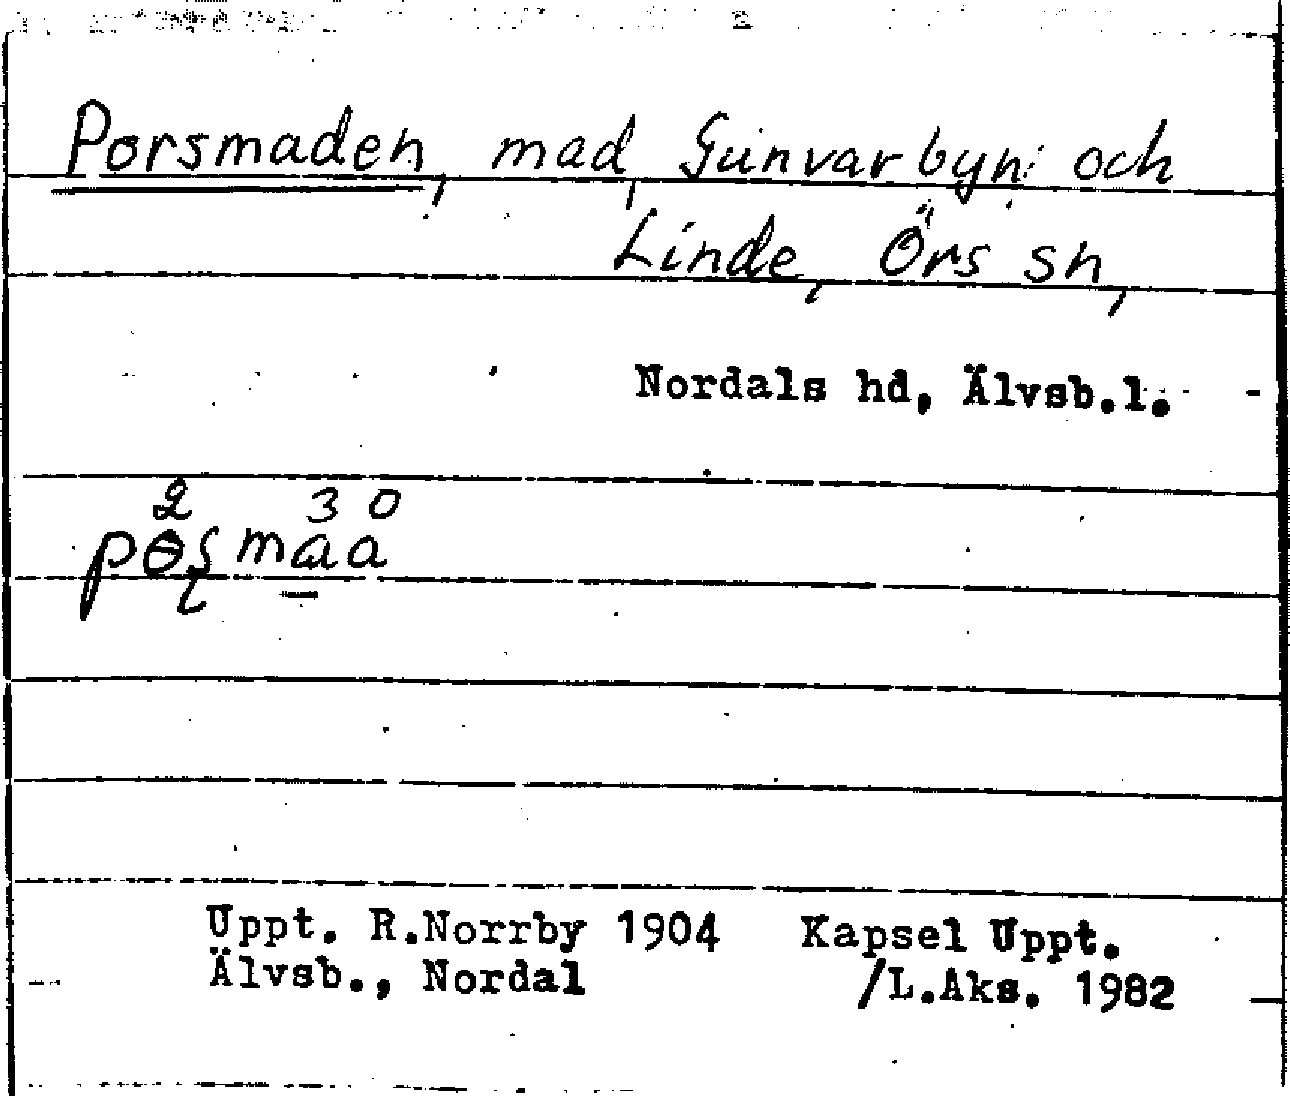 Porsmaden, mad, Gunvarbyn och
Linde, Örs sn,
Nordals hd, Älvsb.l.
2 3 0
pɵʂmaa
Uppt. R.Norrby 1904 Kapsel Uppt.
Älvsb., Nordal /L.Aks. 1982